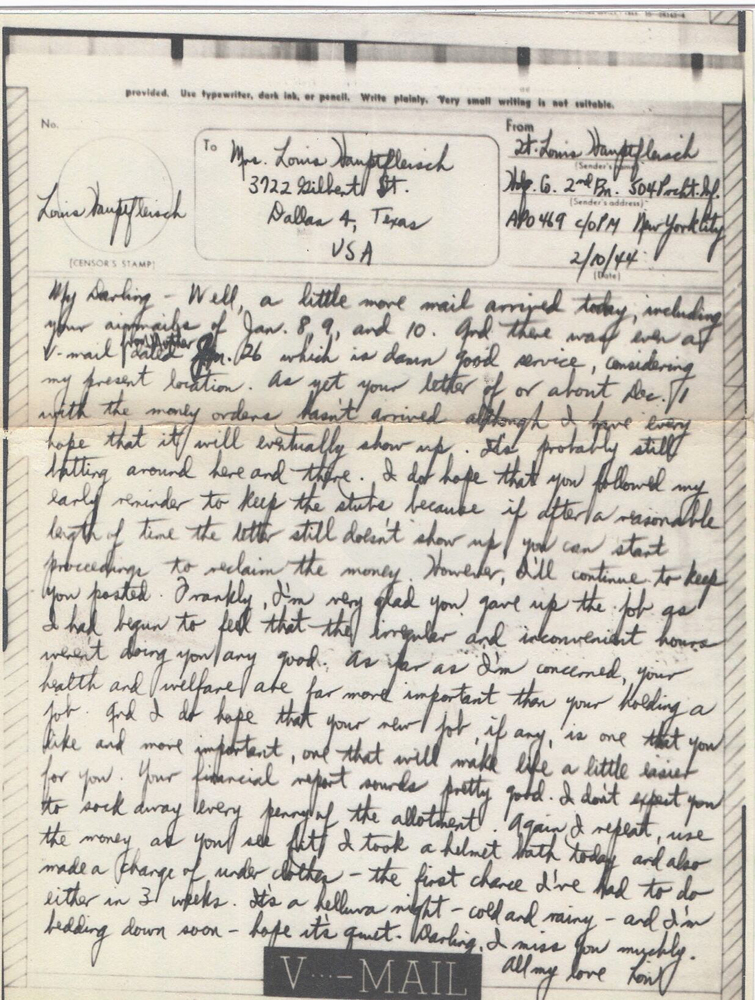 provided. Use typewriter, dark ink, or pencil. Write plainly. Very small writing is not suitable.
No.
Louis Hauptfleisch
[CENSOR'S STAMP]
To
Mrs. Louis Hauptfleisch
3722 Gilbert St.
Dallas 4, Texas
USA
From
Lt. Louis Hauptfleisch
(Sender's name)
Hdq. Co. 2nd Bn. 504 Parcht. Inf.
(Sender's address)
APO 469 c/o PM New York City
2/10/44
(Date)
My Darling – Well, a little more mail arrived today, including
your airmails of Jan. 8, 9, and 10. And there was even a
V-mail from Mother dated Jan. 26 which is damn good service, considering
my present location. As yet your letter of or about Dec. 1
with the money orders hasn't arrived although I have every
hope that it will eventually show up. It's probably still
batting around here and there. I do hope that you followed my
early reminder to keep the stubs because if after a reasonable
length of time the letter still doesn't show up, you can start
proceedings to reclaim the money. However, I'll continue to keep
you posted. Frankly, I'm very glad you gave up the job as
I had begun to feel that the irregular and inconvenient hours
weren't doing you any good. As far as I'm concerned, your
health and welfare are far more important than your holding a
job. And I do hope that your new job, if any, is one that you
like and more important, one that will make life a little easier
for you. Your financial report sounds pretty good. I don't expect you
to sock away every penny of the allotment. Again I repeat, use
the money as you see fit. I took a helmet bath today and also
made a change of under clothes – the first chance I've had to do
either in 3 weeks. It's a helluva night – cold and rainy – and I'm
bedding down soon – hope it's quiet. Darling, I miss you muchly.
All my love Lou
V···–MAIL